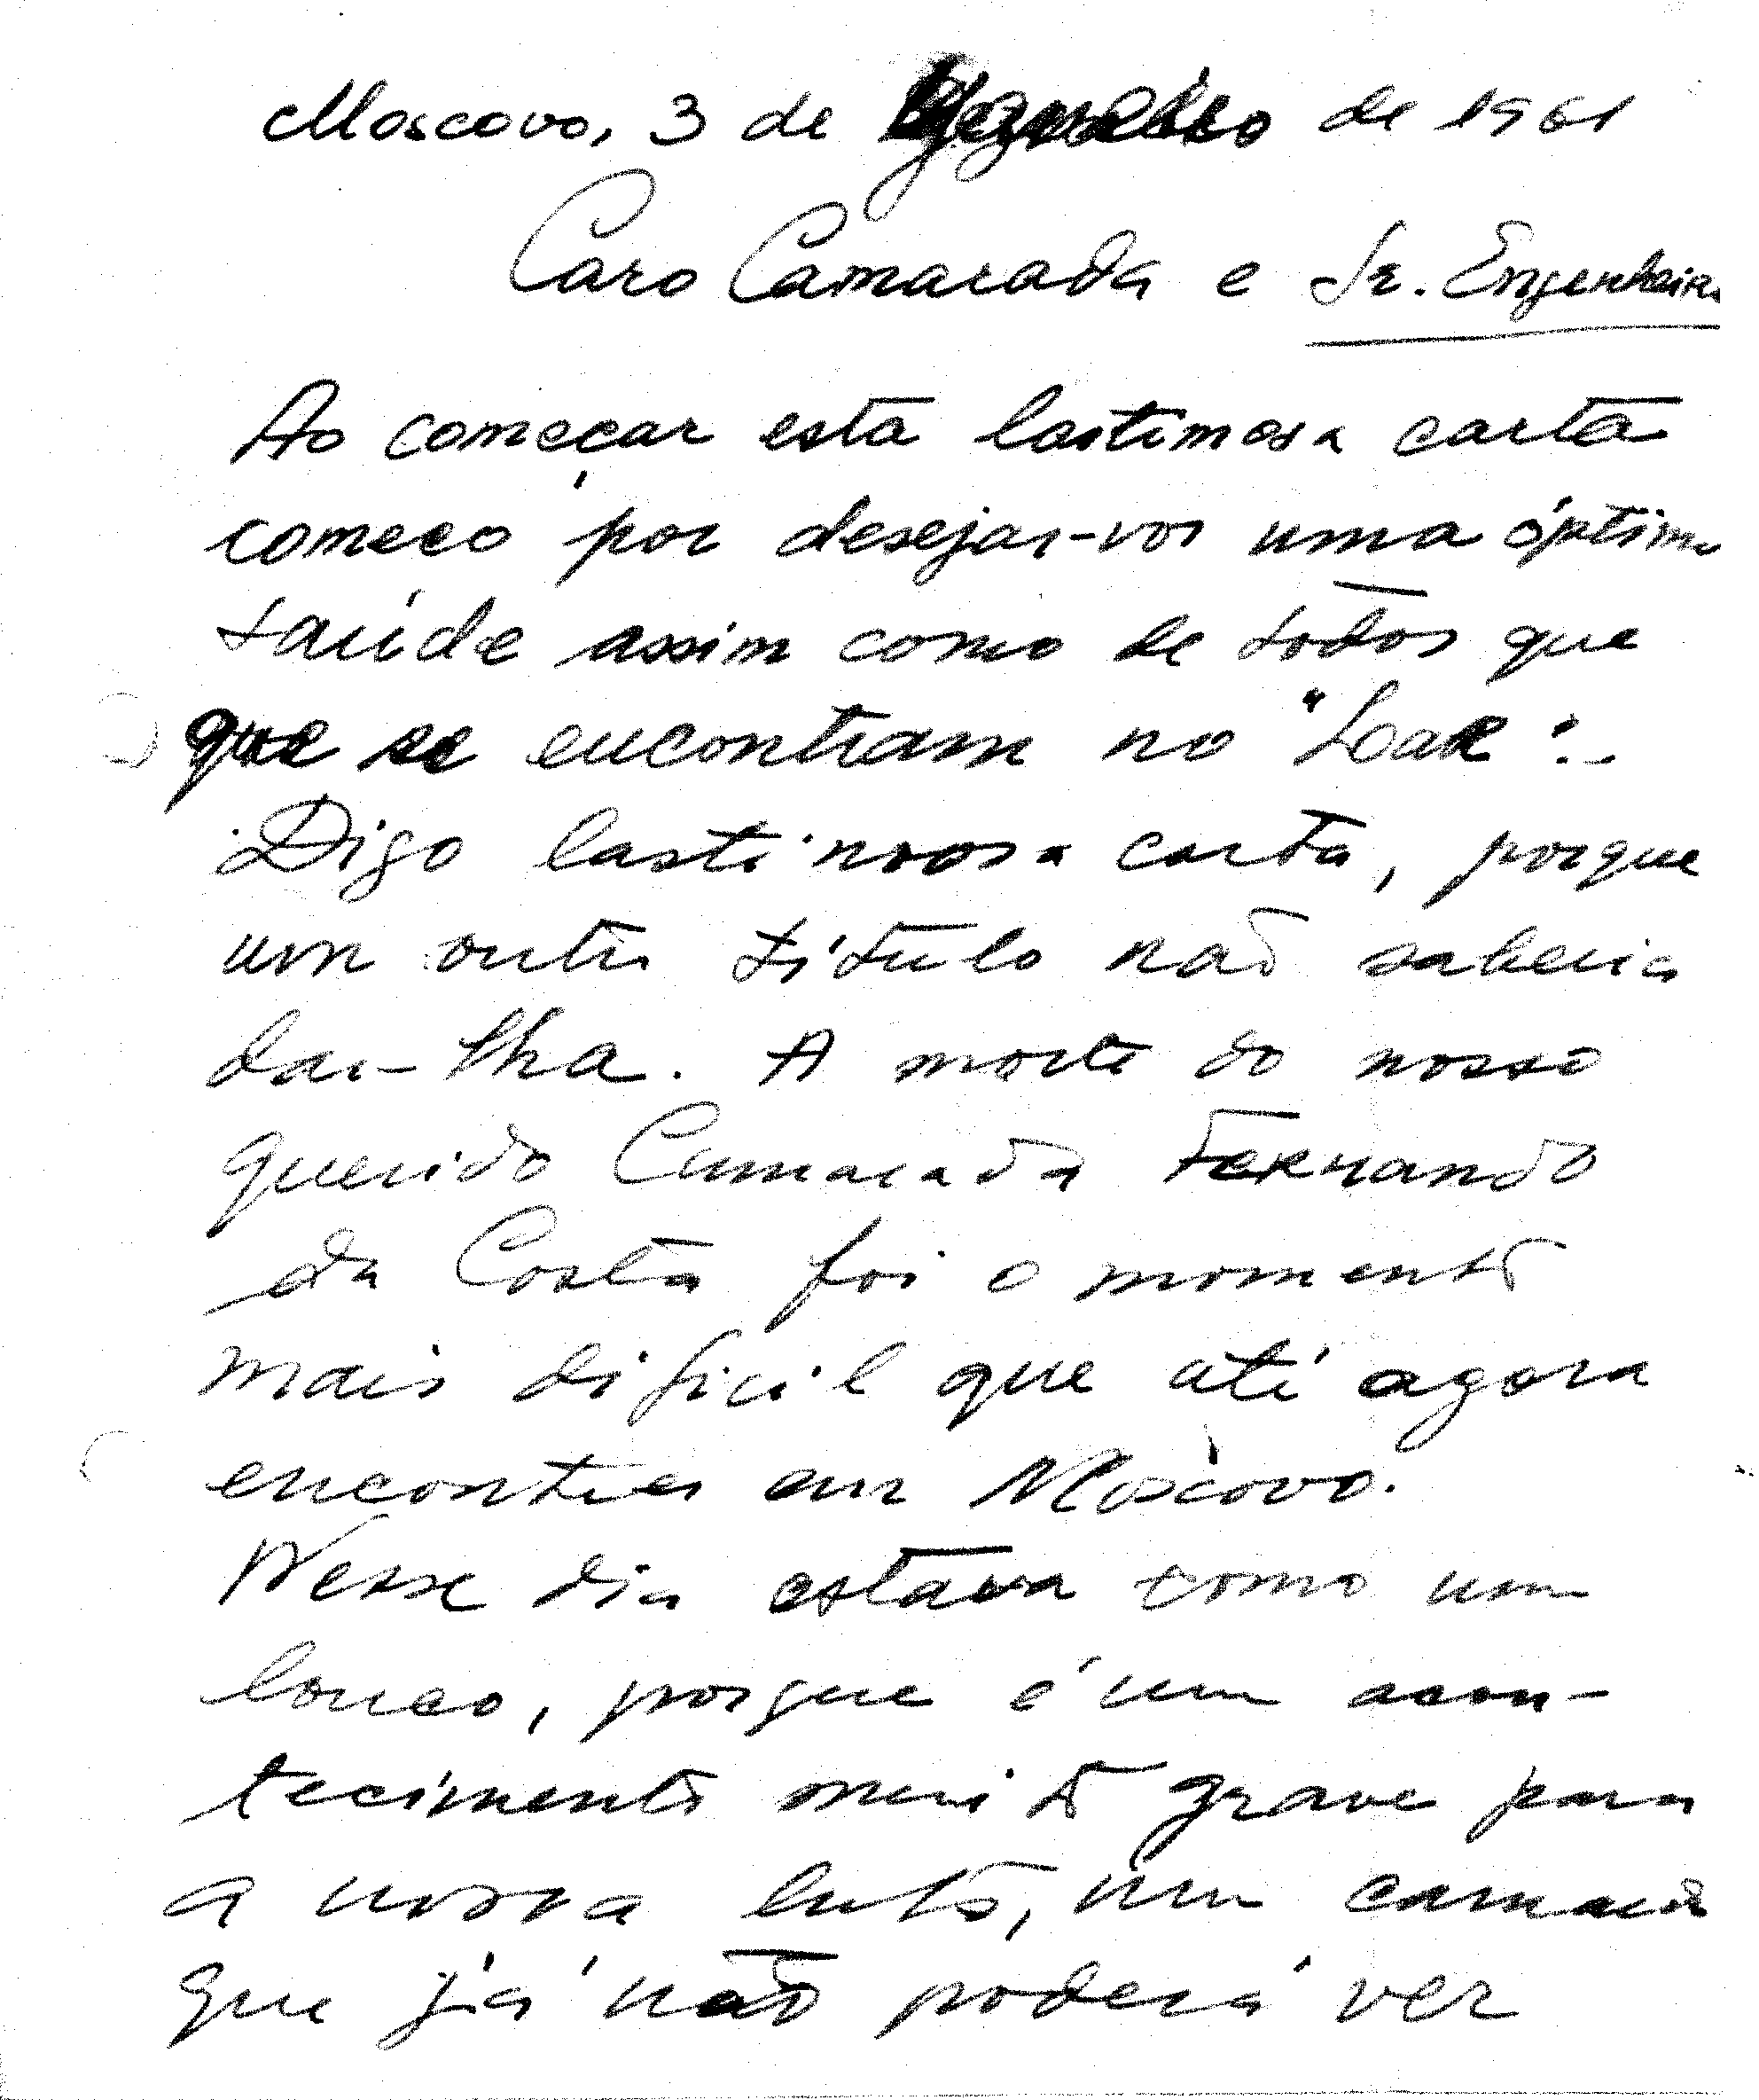 Moscovo, 3 de Dezembro de 1961
Caro Camarada e Sr. Engenheiro
Ao começar esta lastimosa carta
começo por desejar-vos uma óptima
saúde assim como de todos que
que se encontram no "Lar".
Digo lastimosa carta, porque
um outro título não saberia
dar-lha. A morte do nosso
querido Camarada Fernando
da Costa foi o momento
mais dificil que até agora
encontrei em Moscovo.
Nesse dia estava como um
louco, porque é um acon-
tecimento muito grave para
a nossa luta, um camarada
que já não poderá ver